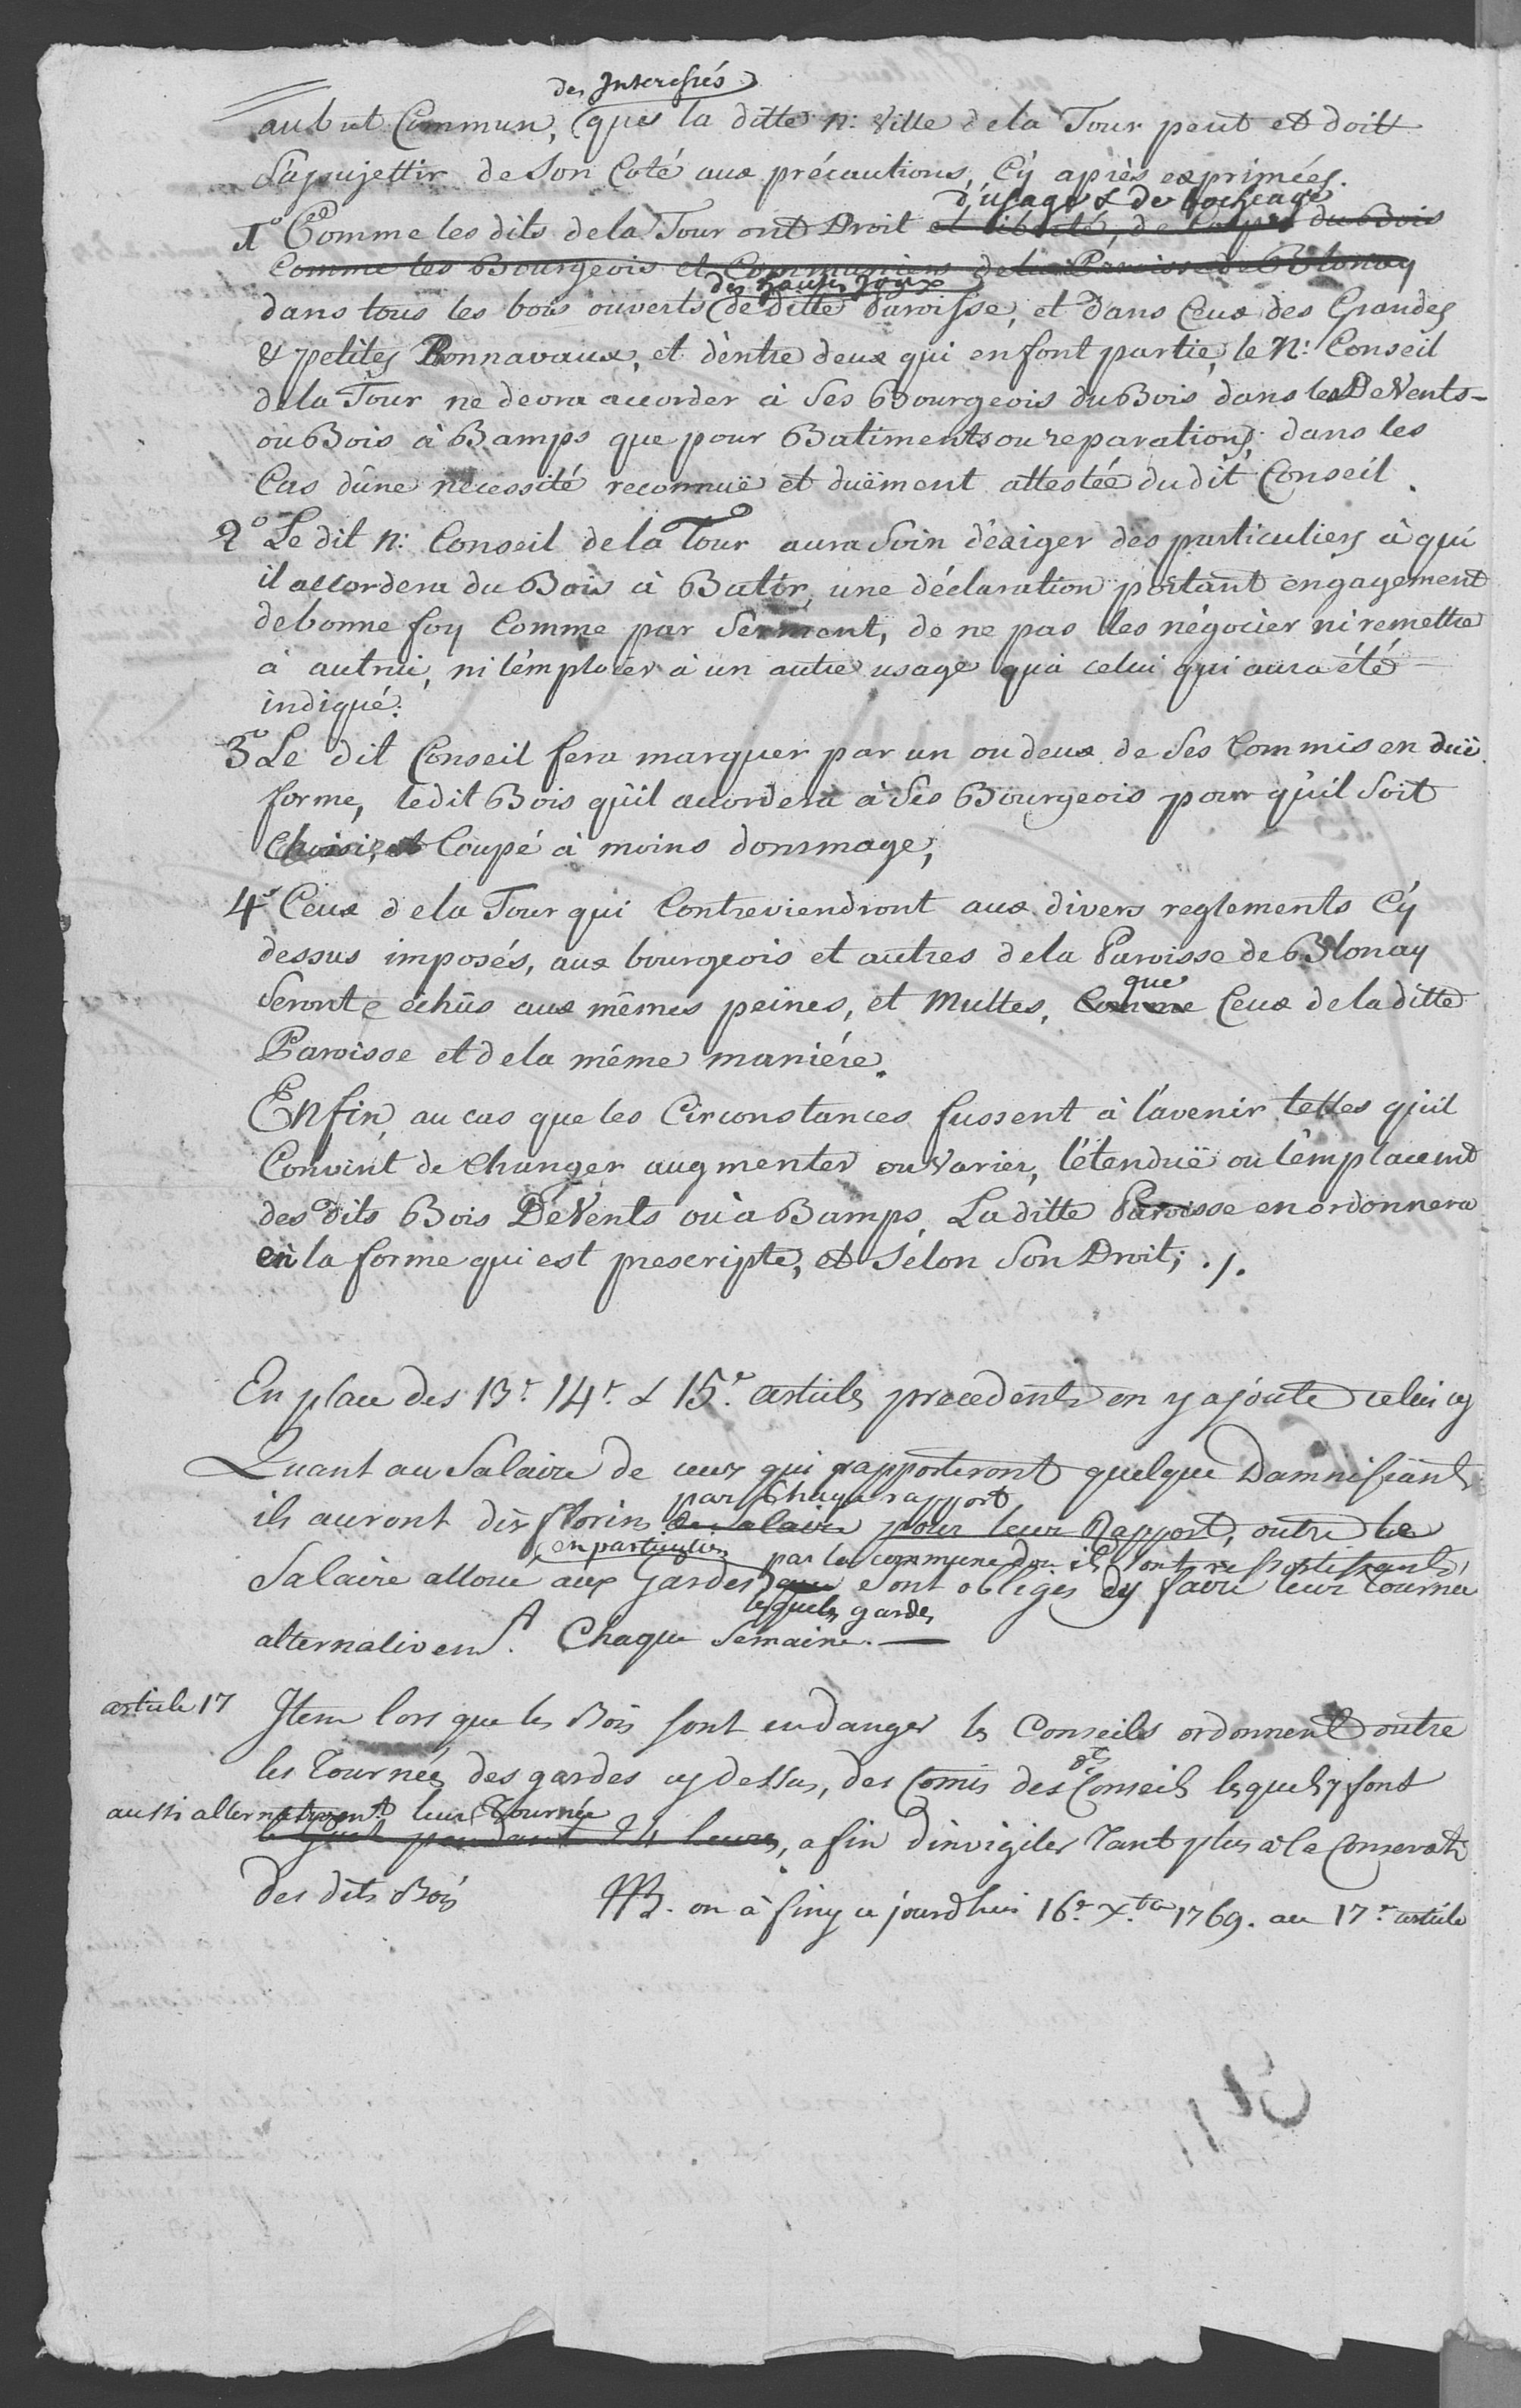 des Interessés
au but Commun, que la ditte n: Ville de la Tour peut et doitt
s'assujettir de son Coté aux précautions, Cÿ après exprimées.
d'usage & de bochéage
1° Comme les dits de la Tour ont Droit et liberté, de Couper du Bois
Comme les Bourgeois et Communiers de la Paroisse de Blonay
des hautes Joux
dans tous les bois ouverts de ditte Paroisse, et dans Ceux des Grandes
& petites Bonnavaux, et d'entre deux qui en font partie, le N: Conseil
de la Tour ne devra accorder à Ses Bourgeois du Bois dans les DeVents-
ou Bois à Bamps que pour Batiments ou reparations, dans les
Cas dûne necessité reconnuë et duëment attestée du dit Conseil.
2° Le dit N: Conseil de la Tour aura Soin d'éxiger des particuliers à qui
il accordera du Bois à Batir, une déclaration portant engagement
de bonne foy Comme par Serment, de ne pas les négocier ni remettre
à autrui, ni l'emploier à un autre usage qu'à celui qui aura été
indiqué.
3° Le dit Conseil fera marquer par un ou deux de Ses Commis en duë
forme, ledit Bois qu'il accordera à Ses Bourgeois pour qu'il Soit
Choisi, et Coupé à moins dommage;
4° Ceux de la Tour qui Contreviendront aux divers reglements Cÿ
dessus imposés, aux bourgeois et autres de la Paroisse de Blonay
Seront échûs aux mêmes peines, et Multes, Comme Ceux de la ditte
que
Paroisse et de la même maniére.
Enfin, au cas que les Circonstances fussent à l'avenir telles qu'il
Convint de Changer augmenter ou Varier, l'étenduë ou l'emplacemt
des dits Bois DéVents ou à Bamps, La ditte Paroisse en ordonnera
en la forme qui est prescripte, et Sélon Son Droit; ./.
En place des 13e 14e & 15e articles precedents on y ajoute celui cy
Quant au Salaire de ceux qui rapporteront quelque Damnifiants
par Chaque rapport
ils auront dix florins de Salaire pour leur Rapport, outre le
en particulier par la commune dou ils sont ressortissants,
Salaire alloué aux Gardes que sont obligés dy faire leur tournée
lesquels gardes
alternativemt. Chaque Semaine. —
article 17 Item lors que les Bois sont en danger les Conseils ordonnent outre
les Tournées des gardes cy dessus, des Comis des dts Conseils lesquels y font
aussi alternativemt leur Tournée
lesquels pendant 24 heures, afin d'invigiler Tant plus à la Conservatn
des dits Bois NB. on à finy ce jourdhui 16e Xbre 1769. au 17e article